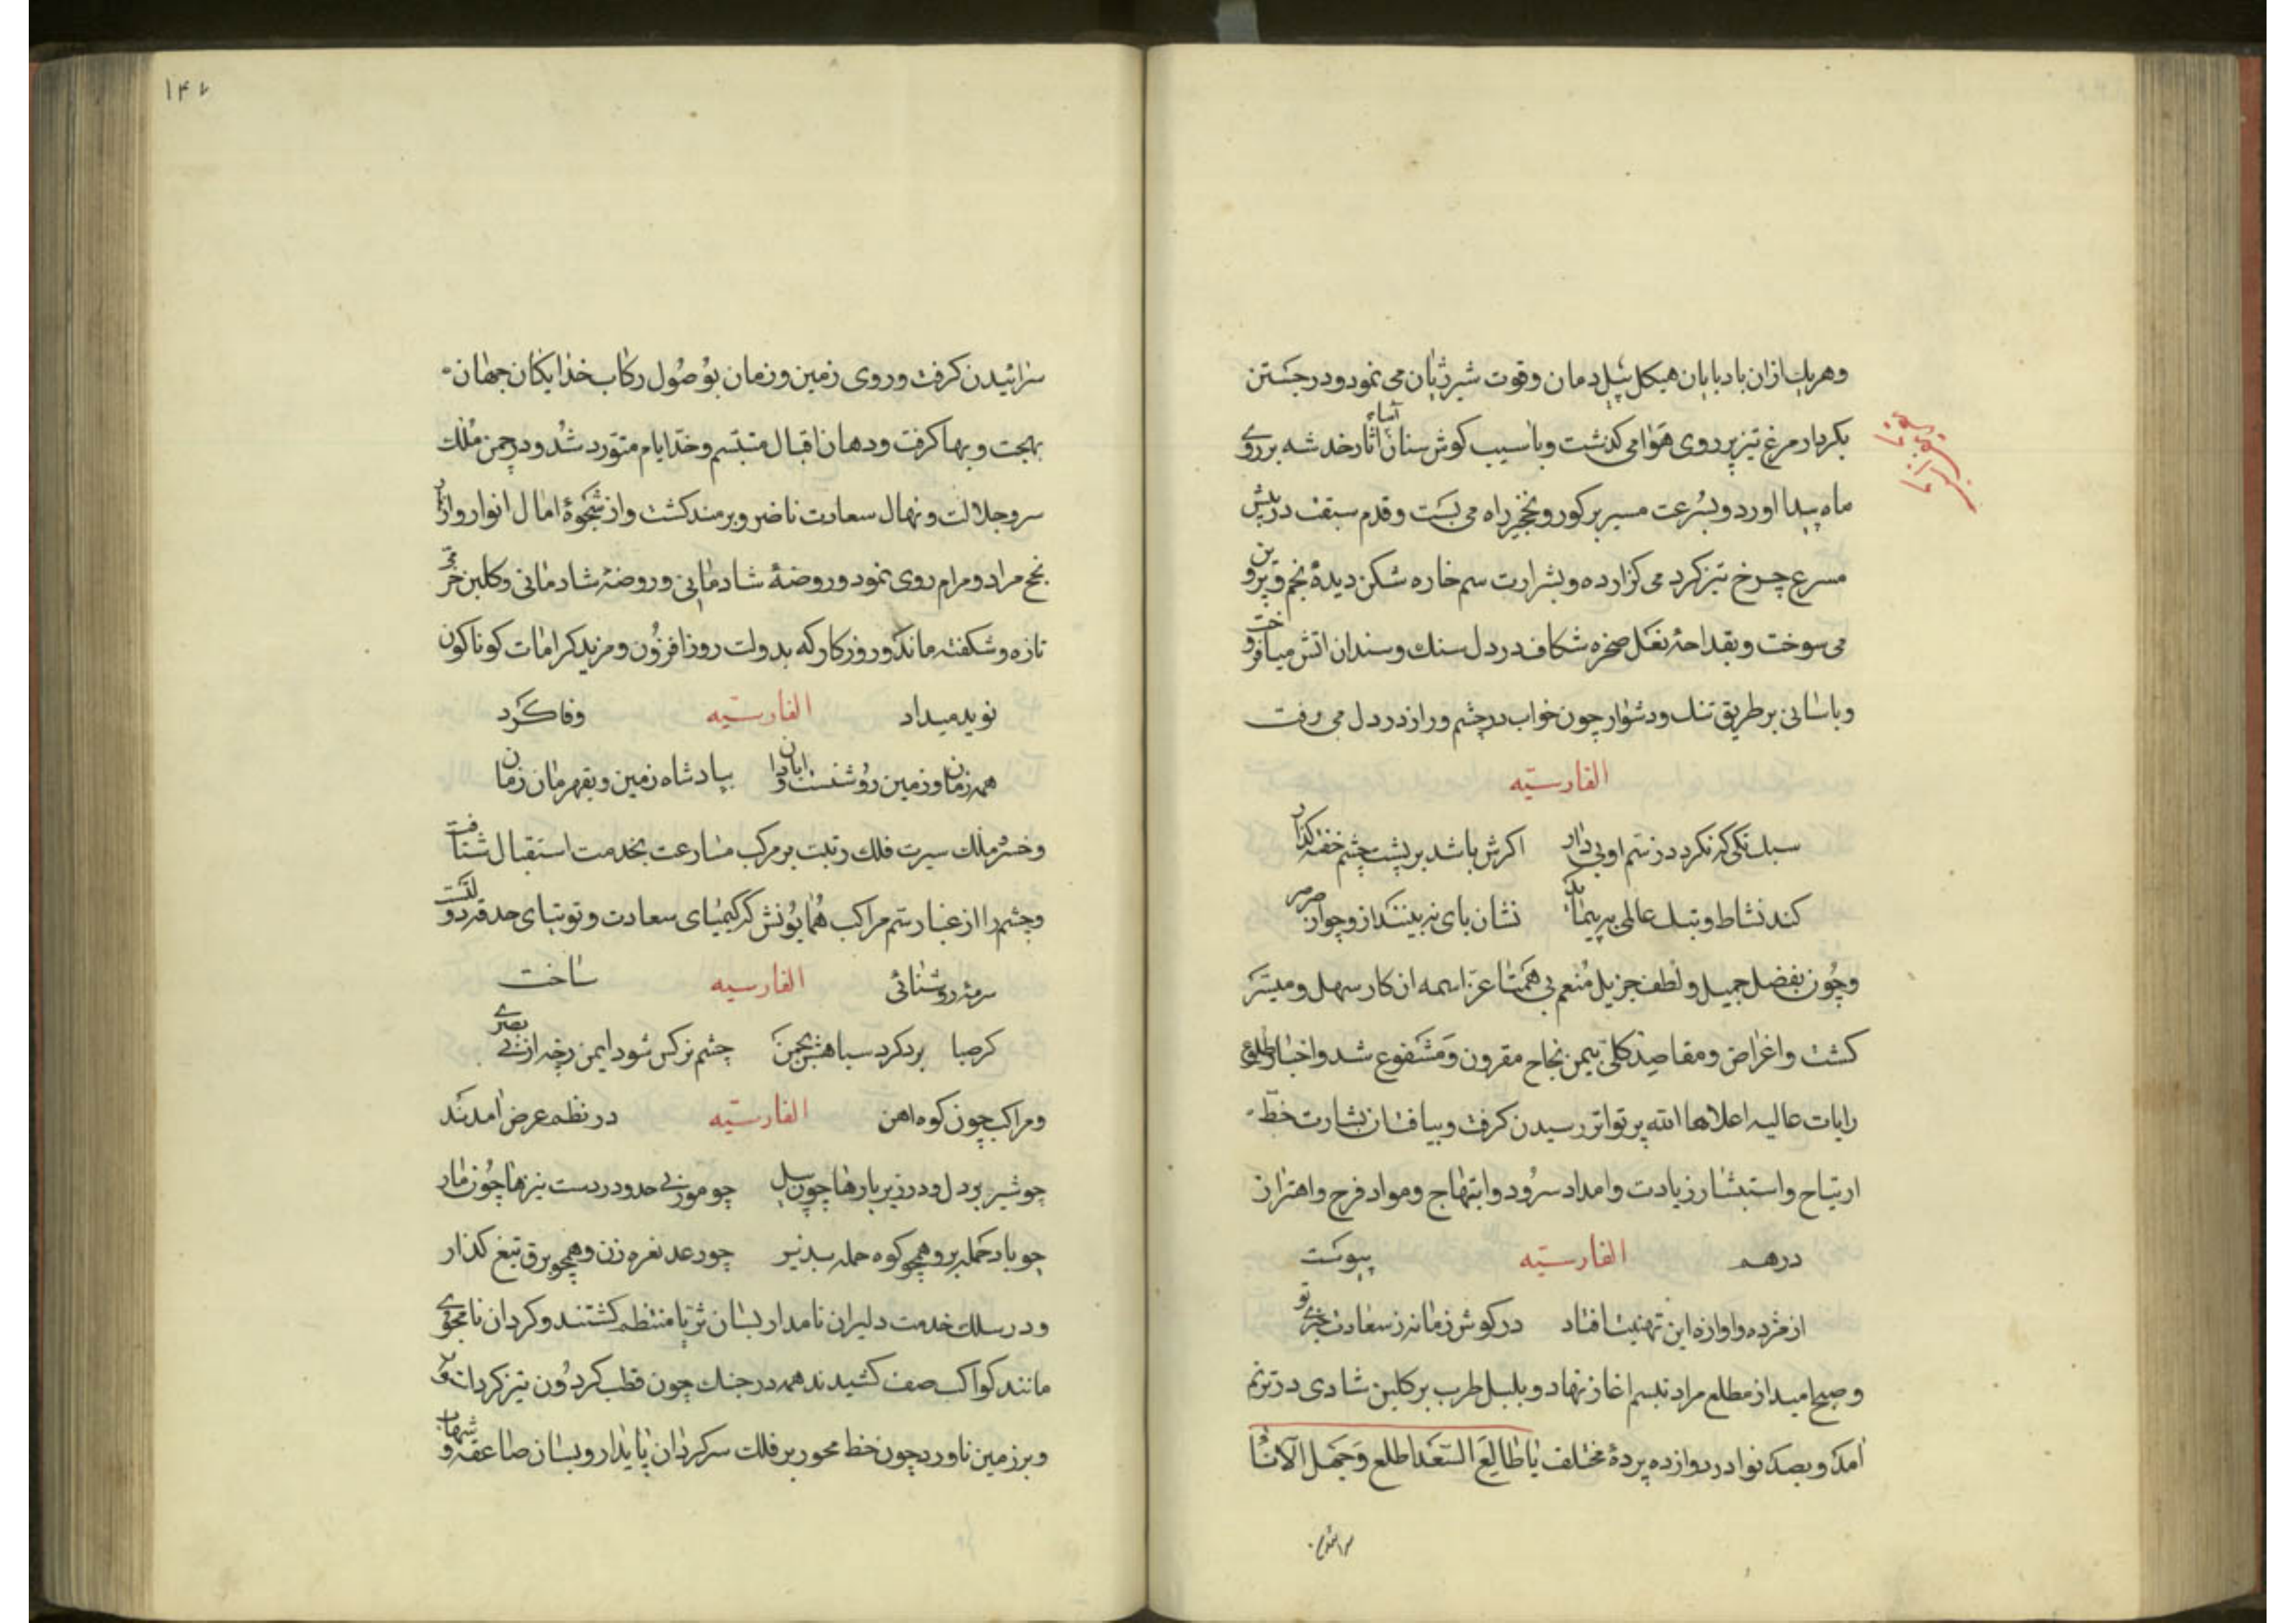 وهریك ازان بادبایان هیكل پیل دمان وقوت شیر ژیان می نمود ودر جستن
بكردار مرغ تیز پر دروی هوا می كذشت وباسیب كوش سنان آسا اثار خدشه بر روی
ماه پیدا اورد وبسرعت مسیر بر كور ونخجیر راه می بست وقدم سبقت در پیش
مسرع چرخ تیز كرد می كزارده وبشرارت سم خاره شكن دیدهٔ نجم وپروین
می سوخت وبقداحهٔ نعل صخره شكاف در دل سنك وسندان اتش میافروخت
وباسانی بر طریق تنك ودشوار چون خواب در چشم وراز در دل می رفت
الفارسیّه
سبك تكی كه نكردد ز سم او بیدار اكرش باشد بر پشت چشم خفته كذار
كند نشاط وبتك عالمی بپیماید نشان پای نه بینند ازو چو از صرصر
وچون بفضل جمیل ولطف جزیل منعم بی همتا عزّ اسمه ان كار سهل ومیسّر
كشت واغراض ومقاصد كلّی بیمن نجاح مقرون ومشفوع شد واخبار طلوع
رایات عالیه اعلاها الله بر تواتر رسیدن كرفت وبیافتان بشارت خطّ
ارتیاح واستبشار زیادت وامداد سرور وابتهاج ومواد فرح واهتزاز
درهم الفارسیّه پیوست
از مژده واوازه این تهنیت افتاد در كوش زمانه ز سعادت خبری تو
وصبح امید از مطلع مراد تبسم اغاز نهاد وبلبل طرب بر كلبن شادی در ترنم
امد وبصد نوا در دوازده پردهٔ مختلف یا طالع السّعد اطلع وجمل الآثا
سرائیدن
۱۴۷
سرائیدن كرفت وروی زمین وزمان بوصول ركاب خدایكان جهان
بهجت وبها كرفت ودهان اقبال متبسّم وخدّ ایام متورد شد ودر چمن ملك
سرو جلالت ونهال سعادت ناضر وبرمند كشت واز شجرهٔ امال انوار وازهار
نجح مراد ومرام روی نمود وروضهٔ شادمانی وروضهٔ شادمانی وكلبن خرّمی
تازه وشكفته ماند وروزكار كه بدولت روز افزون ومزید كرامات كوناكون
نوید میداد الفارسیّه وفا كرد
همه زمان وزمین روشنست وابادان بپادشاه زمین وبقهرمان زمان
وخسرو ملك سیرت فلك رتبت بر مركب مسارعت بخدمت استقبال شتافت
وچشم را از غبار سم مراكب همایونش كه كیمیای سعادت وتوتیای حدقه دولتست
سرمهٔ روشنائی الفارسیه ساخت
كر صبا برد كرد سپاهش بچمن چشم نركس شود ایمن ز چه از بی بصری
ومراكب چون كوه اهن الفارسیّه در نظم عرض امدند
چو شیر پر دل ودر زیر بارها چون پیل چو مور بی حد ودر دست نیزها چون مار
چو باد حمله بر وهمچو كوه حمله پذیر چو رعد نعره زن وهمچو برق تیغ كذار
ودر سلك خدمت دلیران نامدار بسان ثریا منتظم كشتند وكردان نامجوی
مانند كواكب صف كشیدند همه در جنك چون قطب كردون تیز كردان
وبر زمین ناورد چون خط محور بر فلك سركردان پایدار وبسان صاعقه وشهاب